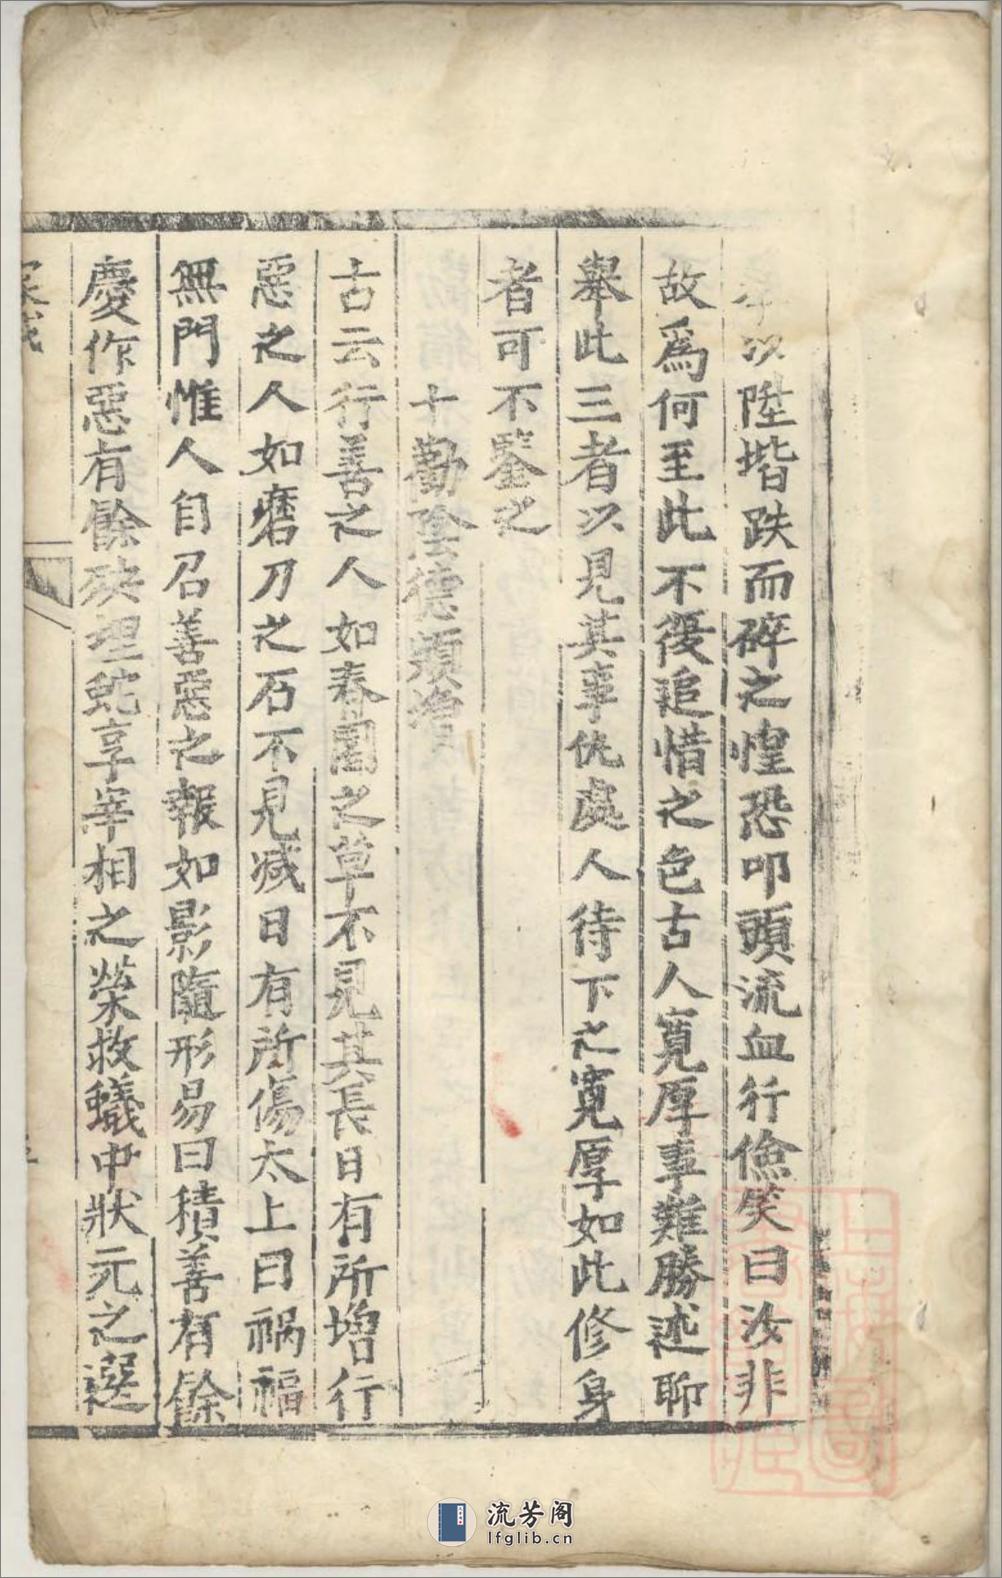 以陞堦跌而碎之惶恐叩頭流血行儉笑曰汝非
故爲何至此不復追惜之色古人寬厚事難勝述聊
舉此三者以見其事仇處人待下之寬厚如此修身
者可不鑒之
十勸陰德類增
古云行善之人如春園之草不見其長日有所增行
惡之人如磨刀之石不見减日有所傷太上曰祸福
無門惟人自召善惡之報如影隨形易曰積善有餘
慶作惡有餘殃埋蛇享宰相之榮救蟻中狀元之選
流芳阁
lfglib.cn